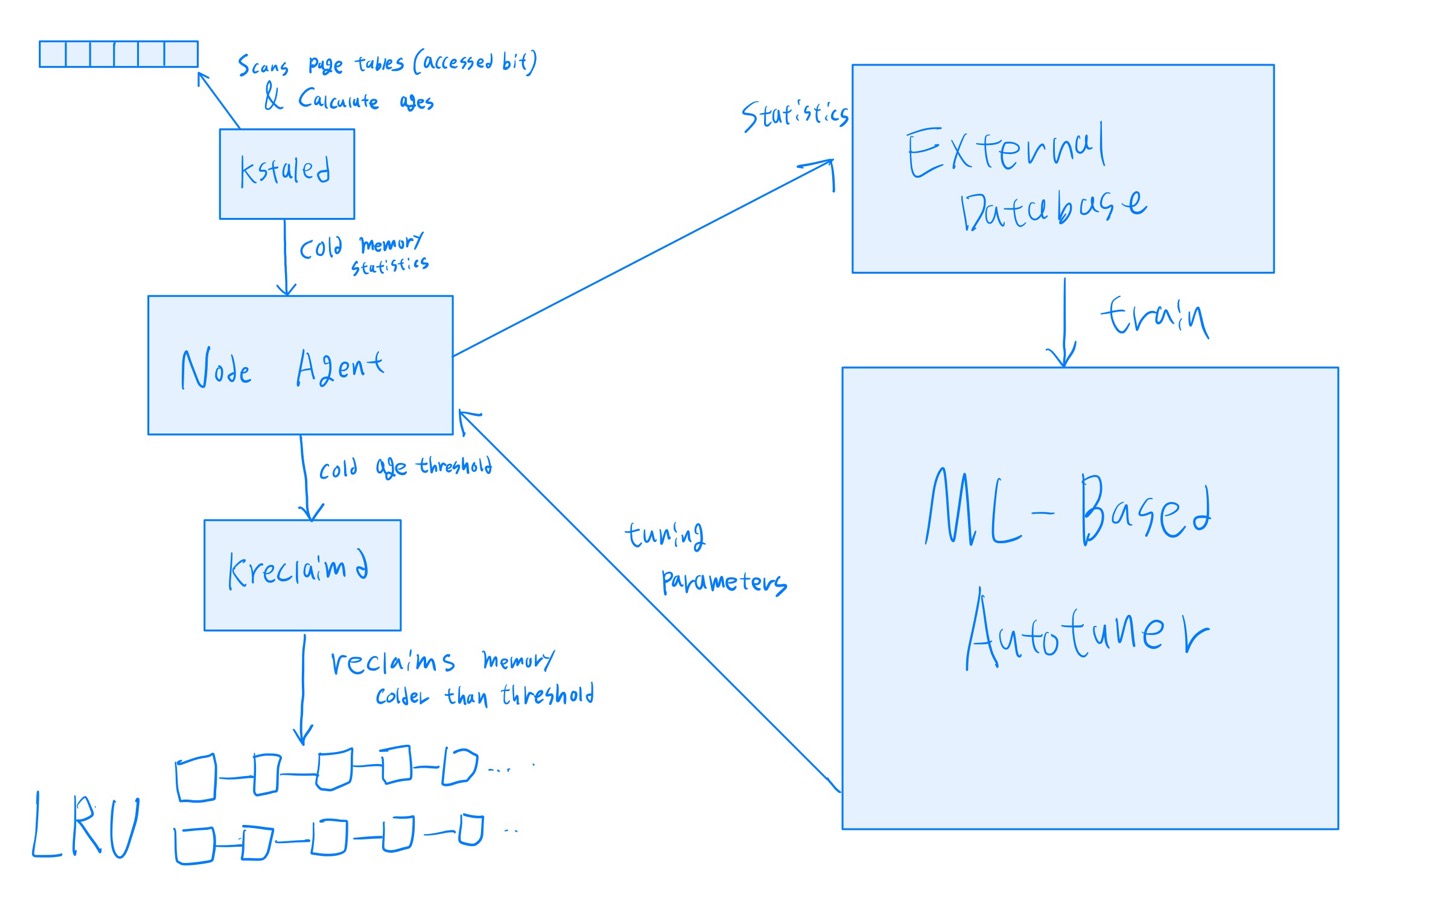 Scans page tables (accessed bit)
& Calculate ages
kstaled
cold memory
statistics
Node Agent
cold age threshold
Kreclaimd
reclaims memory
colder than threshold
LRU
Statistics
External
Database
train
ML-Based
Autotuner
tuning
parameters